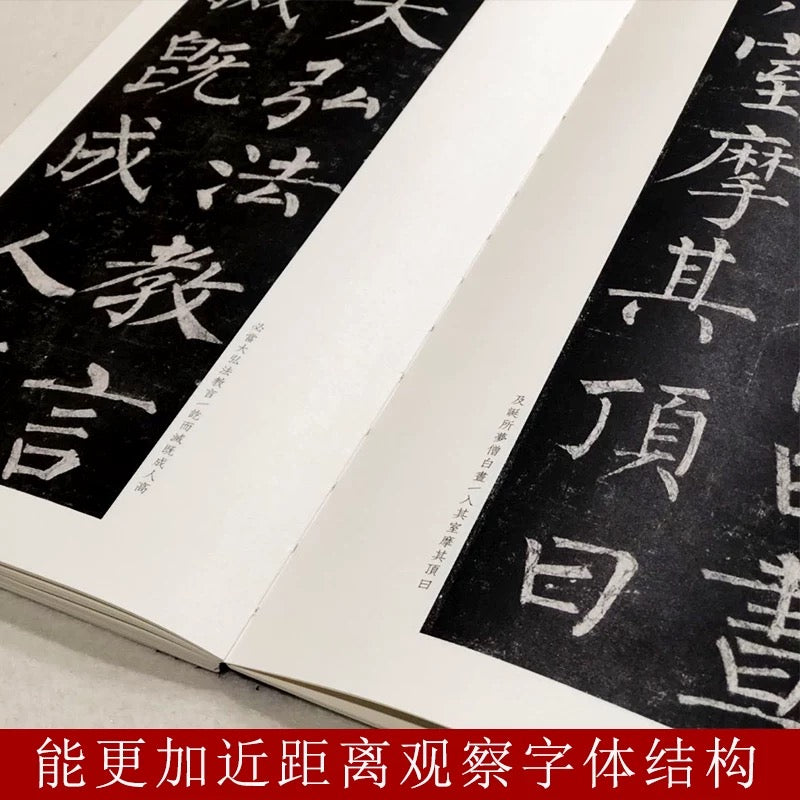 晝
室摩其頂曰
及誕所夢僧白晝/入其室摩其頂曰
大弘法教言
滅既成人
必當大弘法教言/訖而滅既成人高
能更加近距离观察字体结构